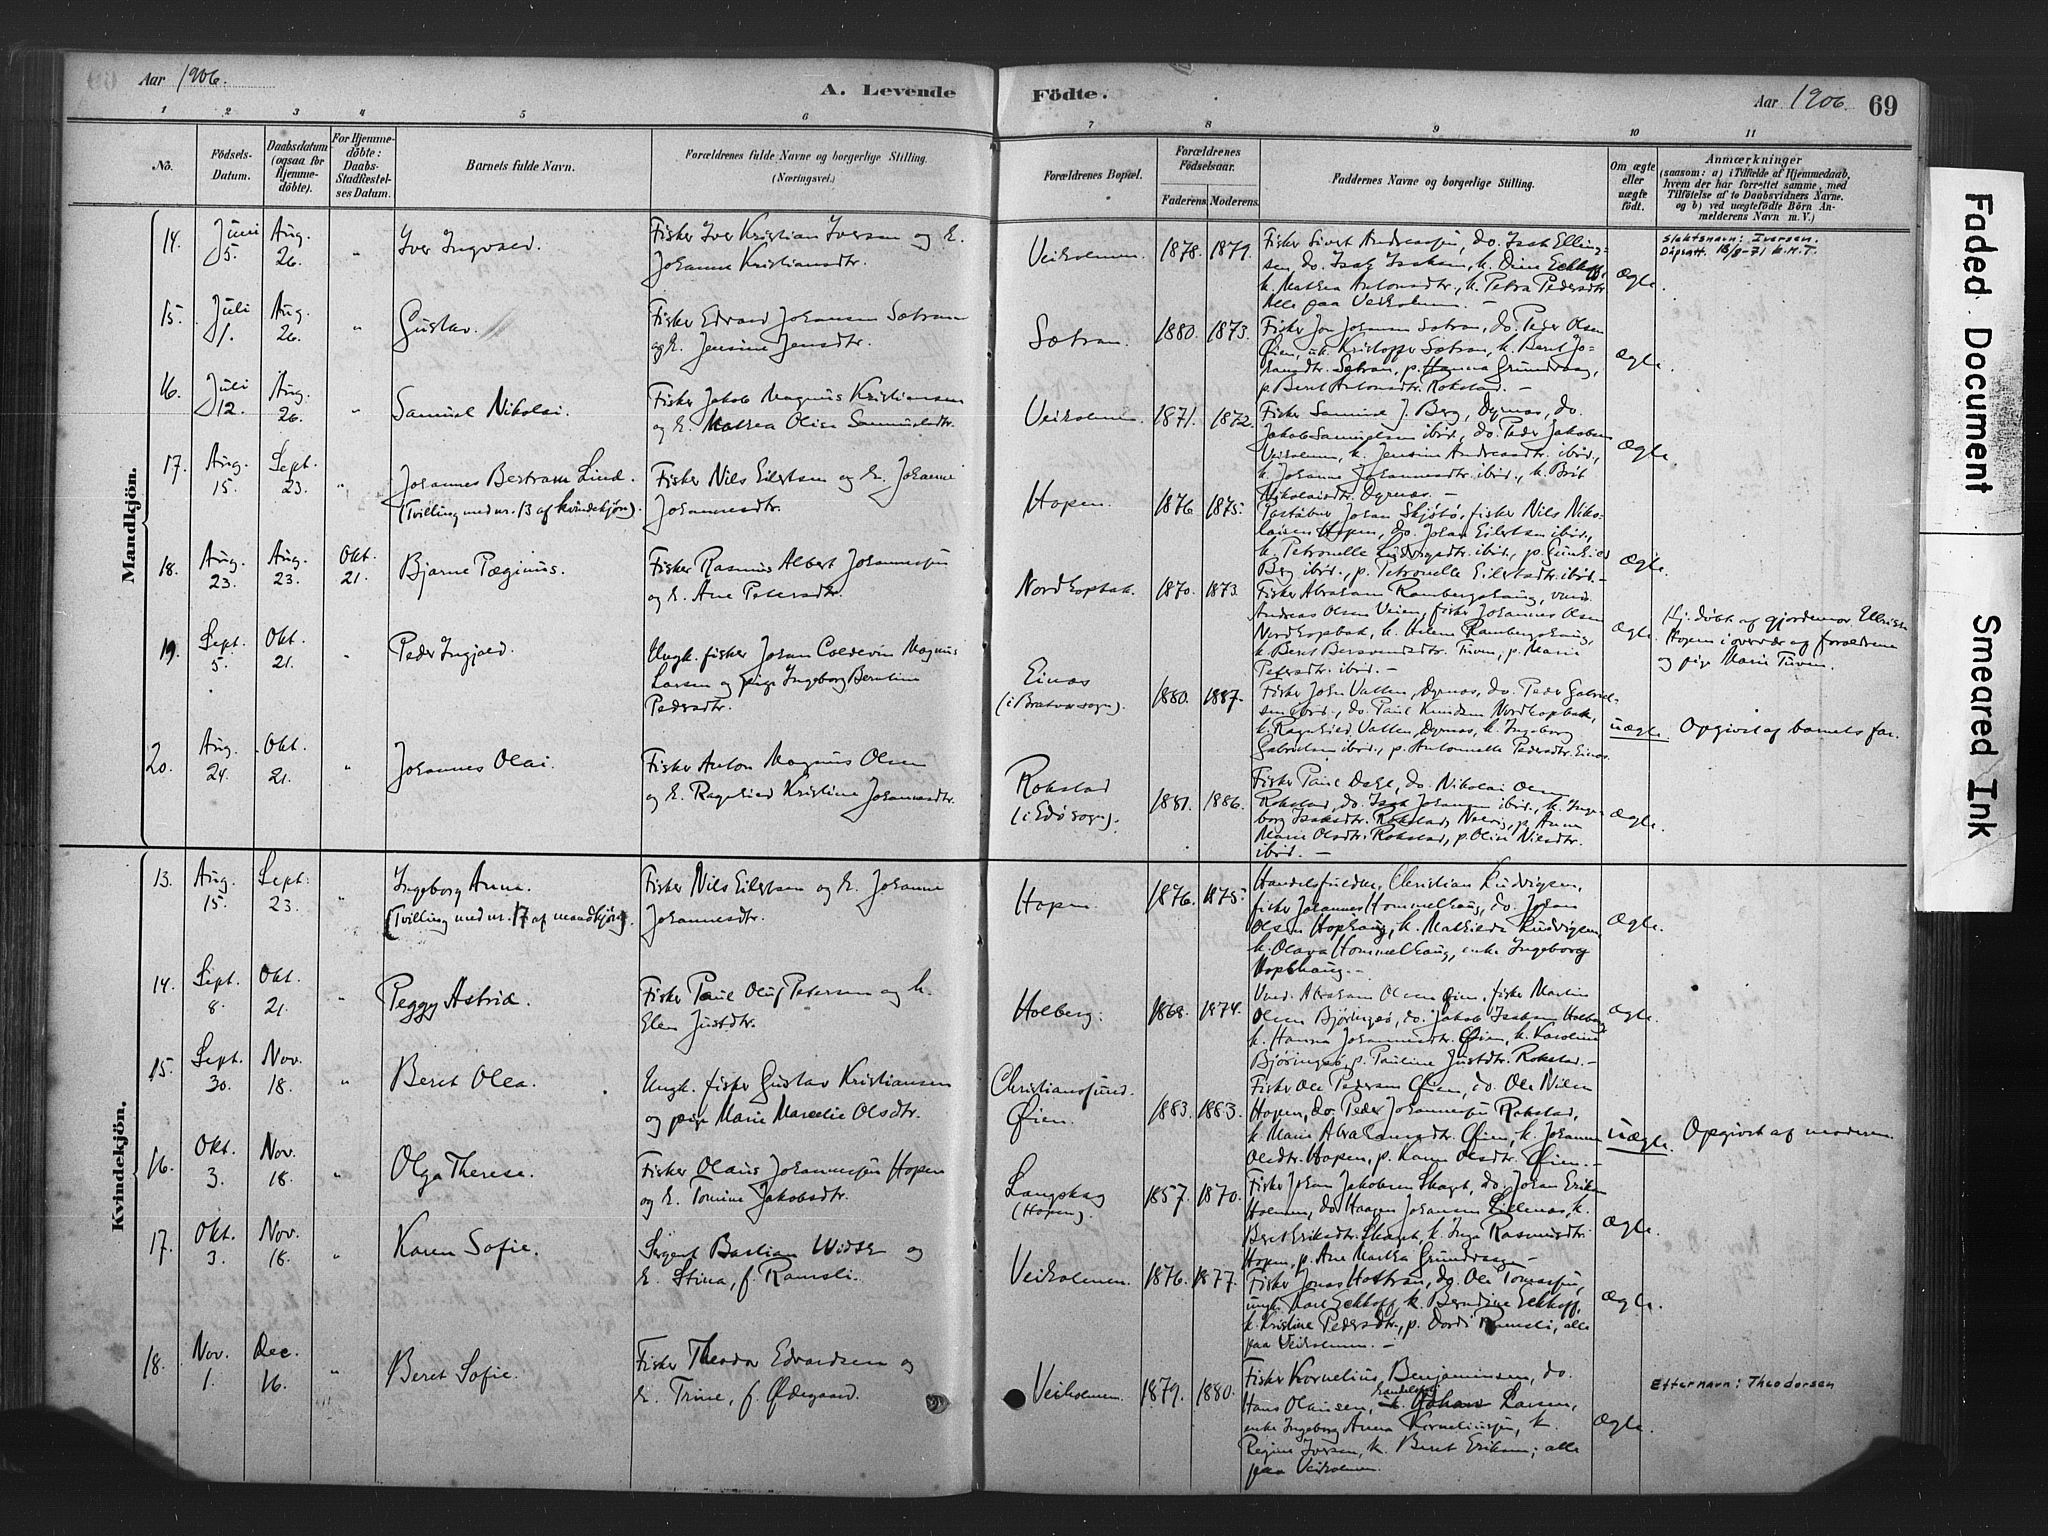 Aar 1906.
A. Levende Födte.
Aar 1906. 69
1 2 3 4 5 6 7 8 9 10 11
No.
Födsels-Datum.
Daabsdatum (ogsaa for Hjemme-döbte).
For Hjemme-döbte: Daabs-Stadfæstel-ses Datum.
Barnets fulde Navn.
Forældrenes fulde Navne og borgerlige Stilling.
(Næringsvei.)
Forældrenes Bopæl.
Forældrenes Födselsaar.
Faderens. Moderens.
Faddernes Navne og borgerlige Stilling.
Om ægte eller uægte födt.
Anmærkninger
(saasom: a) i Tilfælde af Hjemmedaab,
hvem der har forrettet samme, med
Tilföielse af to Daabsvidners Navne.
og b) ved uægtefödte Börn An-
melderens Navn m. V.)
Mandkjön.
14. Juni 5. Aug. 26. " Iver Ingvald. Fisker Iver Kristian Iversen og h. Johanne Kristiansdtr. Veiholmen. 1878. 1879. Fisker Sivert Andreassen, do. Isak Elling-
sen, do. Isak Isaksen, k. Dina Eckhoff,
k. Mathea Antonsdtr., k. Petra Pedersdtr.
Alle paa Veiholmen. —
Ægte.
Slektsnavn: Iversen.
Dåpsatt. 18/8-71 K.M.T.
15. Juli 1. Aug. 26. " Gustav. Fisker Edvard Johansen Sætran
og h. Jensine Jensdtr. Sætran. 1880. 1873. Fisker Jon Johansen Sætran, do. Peder Olsen
Øien, uk. Kristoffer Sætran, k. Beret Jo-
hansdtr. Sætran, p. Hanna Grundvaag,
p. Beret Antonsdtr. Rokstad. —
Ægte.
16. Juli 12. Aug. 26. " Samuel Nikolai. Fisker Jakob Magnus Kristiansen
og h. Mathea Olise Samuelsdtr. Veiholmen. 1871. 1872. Fisker Samuel J. Berg, Dyrnæs, do.
Jakob Samuelsen ibid., do. Peder Jakobsen
Veiholmen, k. Jensine Andreasdtr. ibid.,
k. Johanne Johannesdtr. ibid., k. Brit
Nikolaisdtr. Dyrnæs. —
Ægte.
17. Aug. 15. Sept. 23. " Johannes Bertram Lind.
(Tvilling med nr. 13 af kvindekjön). Fisker Nils Eilertsen og h. Johanne
Johannesdtr. Hopen. 1876. 1875. Johan Skjøtø, fisker Nils Niko-
laisen Hopen, do. Johan Eilertsen ibid.,
k. Petronelle Ludvigsdtr. ibid., p. Gunhild
Berg ibid., p. Petronelle Eilertsdtr. ibid. —
Ægte.
18. Aug. 23. Aug. 23. Okt. 21. Bjarne Pæginus. Fisker Rasmus Albert Johannesen
og h. Ane Petersdtr. Nordhopbak. 1870. 1873. Fisker Abraham Rambergshaug,
Andreas Olsen Veien, fisker Johannes Olsen
Nordhopbak, k. Helene Rambergshaug,
k. Beret Tuven, p. Marie
Petersdtr. ibid. —
Ægte.
Hj. döbt af gjordemor
Hopen i overvær af forældrene
og pige Marie Tuven.
19. Sept. 5. Okt. 21. " Peder Ingjald. Ungk. fisker Johan Coldevin Magnus
Larsen og pige Ingeborg Berntine
Pedersdtr. Einæs
(i Bratvær sogn). 1880. 1887. Fisker John Vatten, Dyrnæs, do. Peder Gabriel-
sen ibid., do. Paul Knudsen Nordhopbak,
k. Ragnhild Vatten, Dyrnæs, k. Ingeborg
Gabrielsen ibid., p. Antonette Pedersdtr. Einæs.
uægte. Opgivet af barnets far.
20. Aug. 24. Okt. 21. " Johannes Olai. Fisker Anton Magnus Olsen
og h. Ragnhild Kristine Johannesdtr. Rokstad
(i Edö sogn). 1881. 1886. Fisker Paul Dahl, do. Nikolai Olsen
Rokstad, do. Isak Johansen ibid., k. Inge-
borg Isaksdtr. Rokstad, p. Anne
Marie Olsdtr. Rokstad, p. Olise Nilsdtr.
ibid. —
Ægte.
Kvindekjön.
13. Aug. 15. Sept. 23. " Ingeborg Anna.
(Tvilling med nr. 17 af mandkjön). Fisker Nils Eilertsen og h. Johanne
Johannesdtr. Hopen. 1876. 1875. Handelsfuldm. Christian Ludvigsen,
fisker Johannes Hommelhaug, do. Johan
Olsen Hophaug, k. Mathilde Ludvigsen,
k. Olava Hommelhaug, enke Ingeborg
Hopshaug. —
Ægte.
14. Sept. 8. Okt. 21. " Peggy Astrid. Fisker Paul Oluf Petersen og h.
Elen Justdtr. Holberg. 1869. 1874. Abraham Olsen Øien, fisker Martin
Olsen Björingsö, do. Jakob Isaksen Holberg,
k. Hanna Johannesdtr. Øien, k. Karoline
Björingsö, p. Pauline Justdtr. Rokstad. —
Ægte.
15. Sept. 30. Nov. 18. " Beret Olea. Ungk. fisker Gustav Kristiansen
og pige Marie Marcelie Olsdtr. Christiansund.
Øien. 1883. 1883. Fisker Ole Pedersen Øien, do. Ole Nilsen
Hopen, do. Peder Johannesen Rokstad,
k. Marie Abrahamsdtr. Øien, k. Johanne
Olsdtr. Hopen, p. Karen Olsdtr. Øien. —
uægte. Opgivet af moderen.
16. Okt. 3. Nov. 18. " Olga Therese. Fisker Olaus Johannesen Hopen
og h. Tomine Jakobsdtr. Langskag
(Hopen). 1857. 1870. Fisker Johan Jakobsen Skaget, do. Johan Eriksen
Holmen, do. Haagen Johansen Lillenæs, k.
Beret Eriksdtr. Skaget, k. Inga Rasmusdtr.
Hopen, p. Ane Marthea Grundvaag. —
Ægte.
17. Okt. 3. Nov. 18. " Karen Sofie. Sergent Bastian Widsk og
h. Stina, f. Ramsli. Veiholmen. 1876. 1877. Fisker Jonas Hostran, do. Ole Tomassen,
ungk. Karl Eckhoff, k. Berndine Eckhoff,
k. Kristine Pedersdtr., p. Dordi Ramsli, alle
paa Veiholmen. —
Ægte.
18. Nov. 1. Dec. 16. " Beret Sofie. Fisker Theodor Edvardsen og
h. Trine, f. Ødegaard. Veiholmen. 1879. 1880. Fisker Kornelius Benjaminsen, do.
Hans Olaussen, Johan Larsen,
enke Ingeborg Anna Korneliussen, k.
Regine Iversen, k. Beret Eriksen; alle
paa Veiholmen.
Ægte.
Etternavn: Theodorsen
Faded Document
Smeared Ink